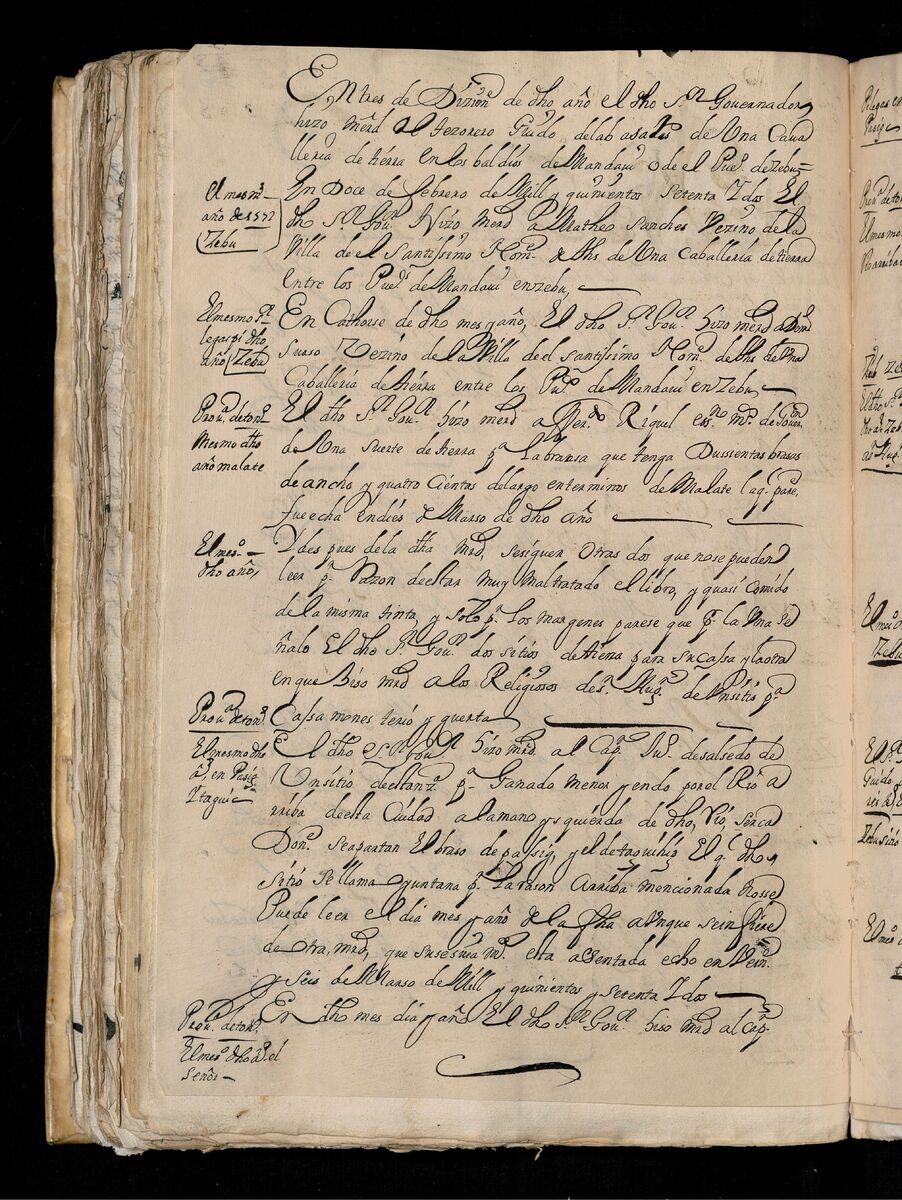 En tres de Diziẽ de dho año el dho S.r Governador
hizo mrd al tezorero Guido delabasares de Una Cava
lleria de tierra en los baldios de Mandaui o de el Pue.o de zebu=
El mesmo
año de 1572
Zebu
En Doce de febrero de Mill y quinientos setenta Y dos El
dho S.r Gou.r hizo mrd a Matheo Sanches Vezino de la
Villa de el Santissimo Nom.e de Jhs de Una Caballeria de tierra
Entre los Pue.s de Mandaui en zebu,
El mesmo S.r
legaspi dho
año Zebu
En Cathorse de dho mes y año, El dho S.r Gou.r hizo mrd a
Suaso Vezino de la Villa de el santissimo Nom.e de Jhs de Una
Caballeria de tierra entre los Pue.s de Mandaui en Zebu,
Prou.a de ton.o
Mesmo dho
año malate
El dho S.r Gou.r hizo mrd a Fer.do Riquel es.no m.r de Gouer.on
de Una suerte de tierra p.a labransa que tenga Dussientas brasas
de ancho y quatro Cientas de largo en terminos de Malate la q.l pare.
fue echa en dies de Marso de dho año
El mes.o
dho año,
Y des pues de la dha mrd, se siguen otras dos que no se pueden
leer p.r Razon de estar muy maltratado el libro, y quasi Comido
de la misma tinta, y solo p.r los margenes parese que p.r la Una se
ñalo El dho S.r Gou.r dos sitios de tierra para su cassa y la otra
en que hiso mrd a los Religiosos de s.n Aug.n de Un sitio p.a
Cassa monesterio y guerta
Prou.a de ton.o
El mesmo dho
a.o en Pasig
Y taguic
El dho S.r Gou.r hizo mrd. al Cap.n Ju.o de salsedo de
Un sitio de estan.a p.a Ganado menor yendo por el Rio a
rriba de esta Ciudad a la mano ysquierda de dho, Rio, serca
Don.e se apartan El braso de passig, y el de taquihig El q.l dho
sitio se llama yuntana p.r la rason Arriba mencionada no sse
Puede leer el dia mes y año de la fha aunque se infiere
de otra, mrd, que susesiuam.te esta asentada echo en Vein.te
y seis de Marso de Mill y quinientos y setenta Y dos
Prou.a de ton.o
El mes.o dho a.o el
señor
En dho mes dia y año El dho S.r Gou.r hiso mrd al Cap.n